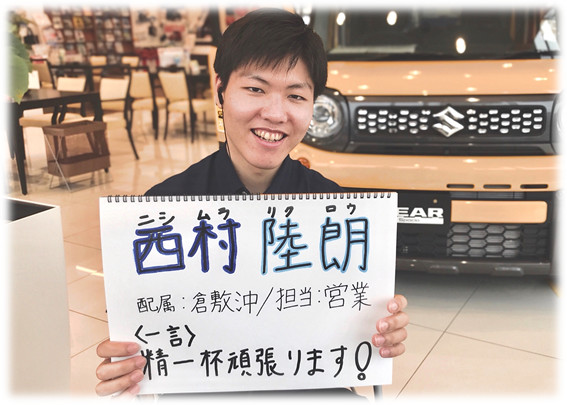 ニシ ムラ リク ロウ
西村 陸朗
配属:倉敷沖/担当:営業
〈一言〉
精一杯頑張ります!
EAR